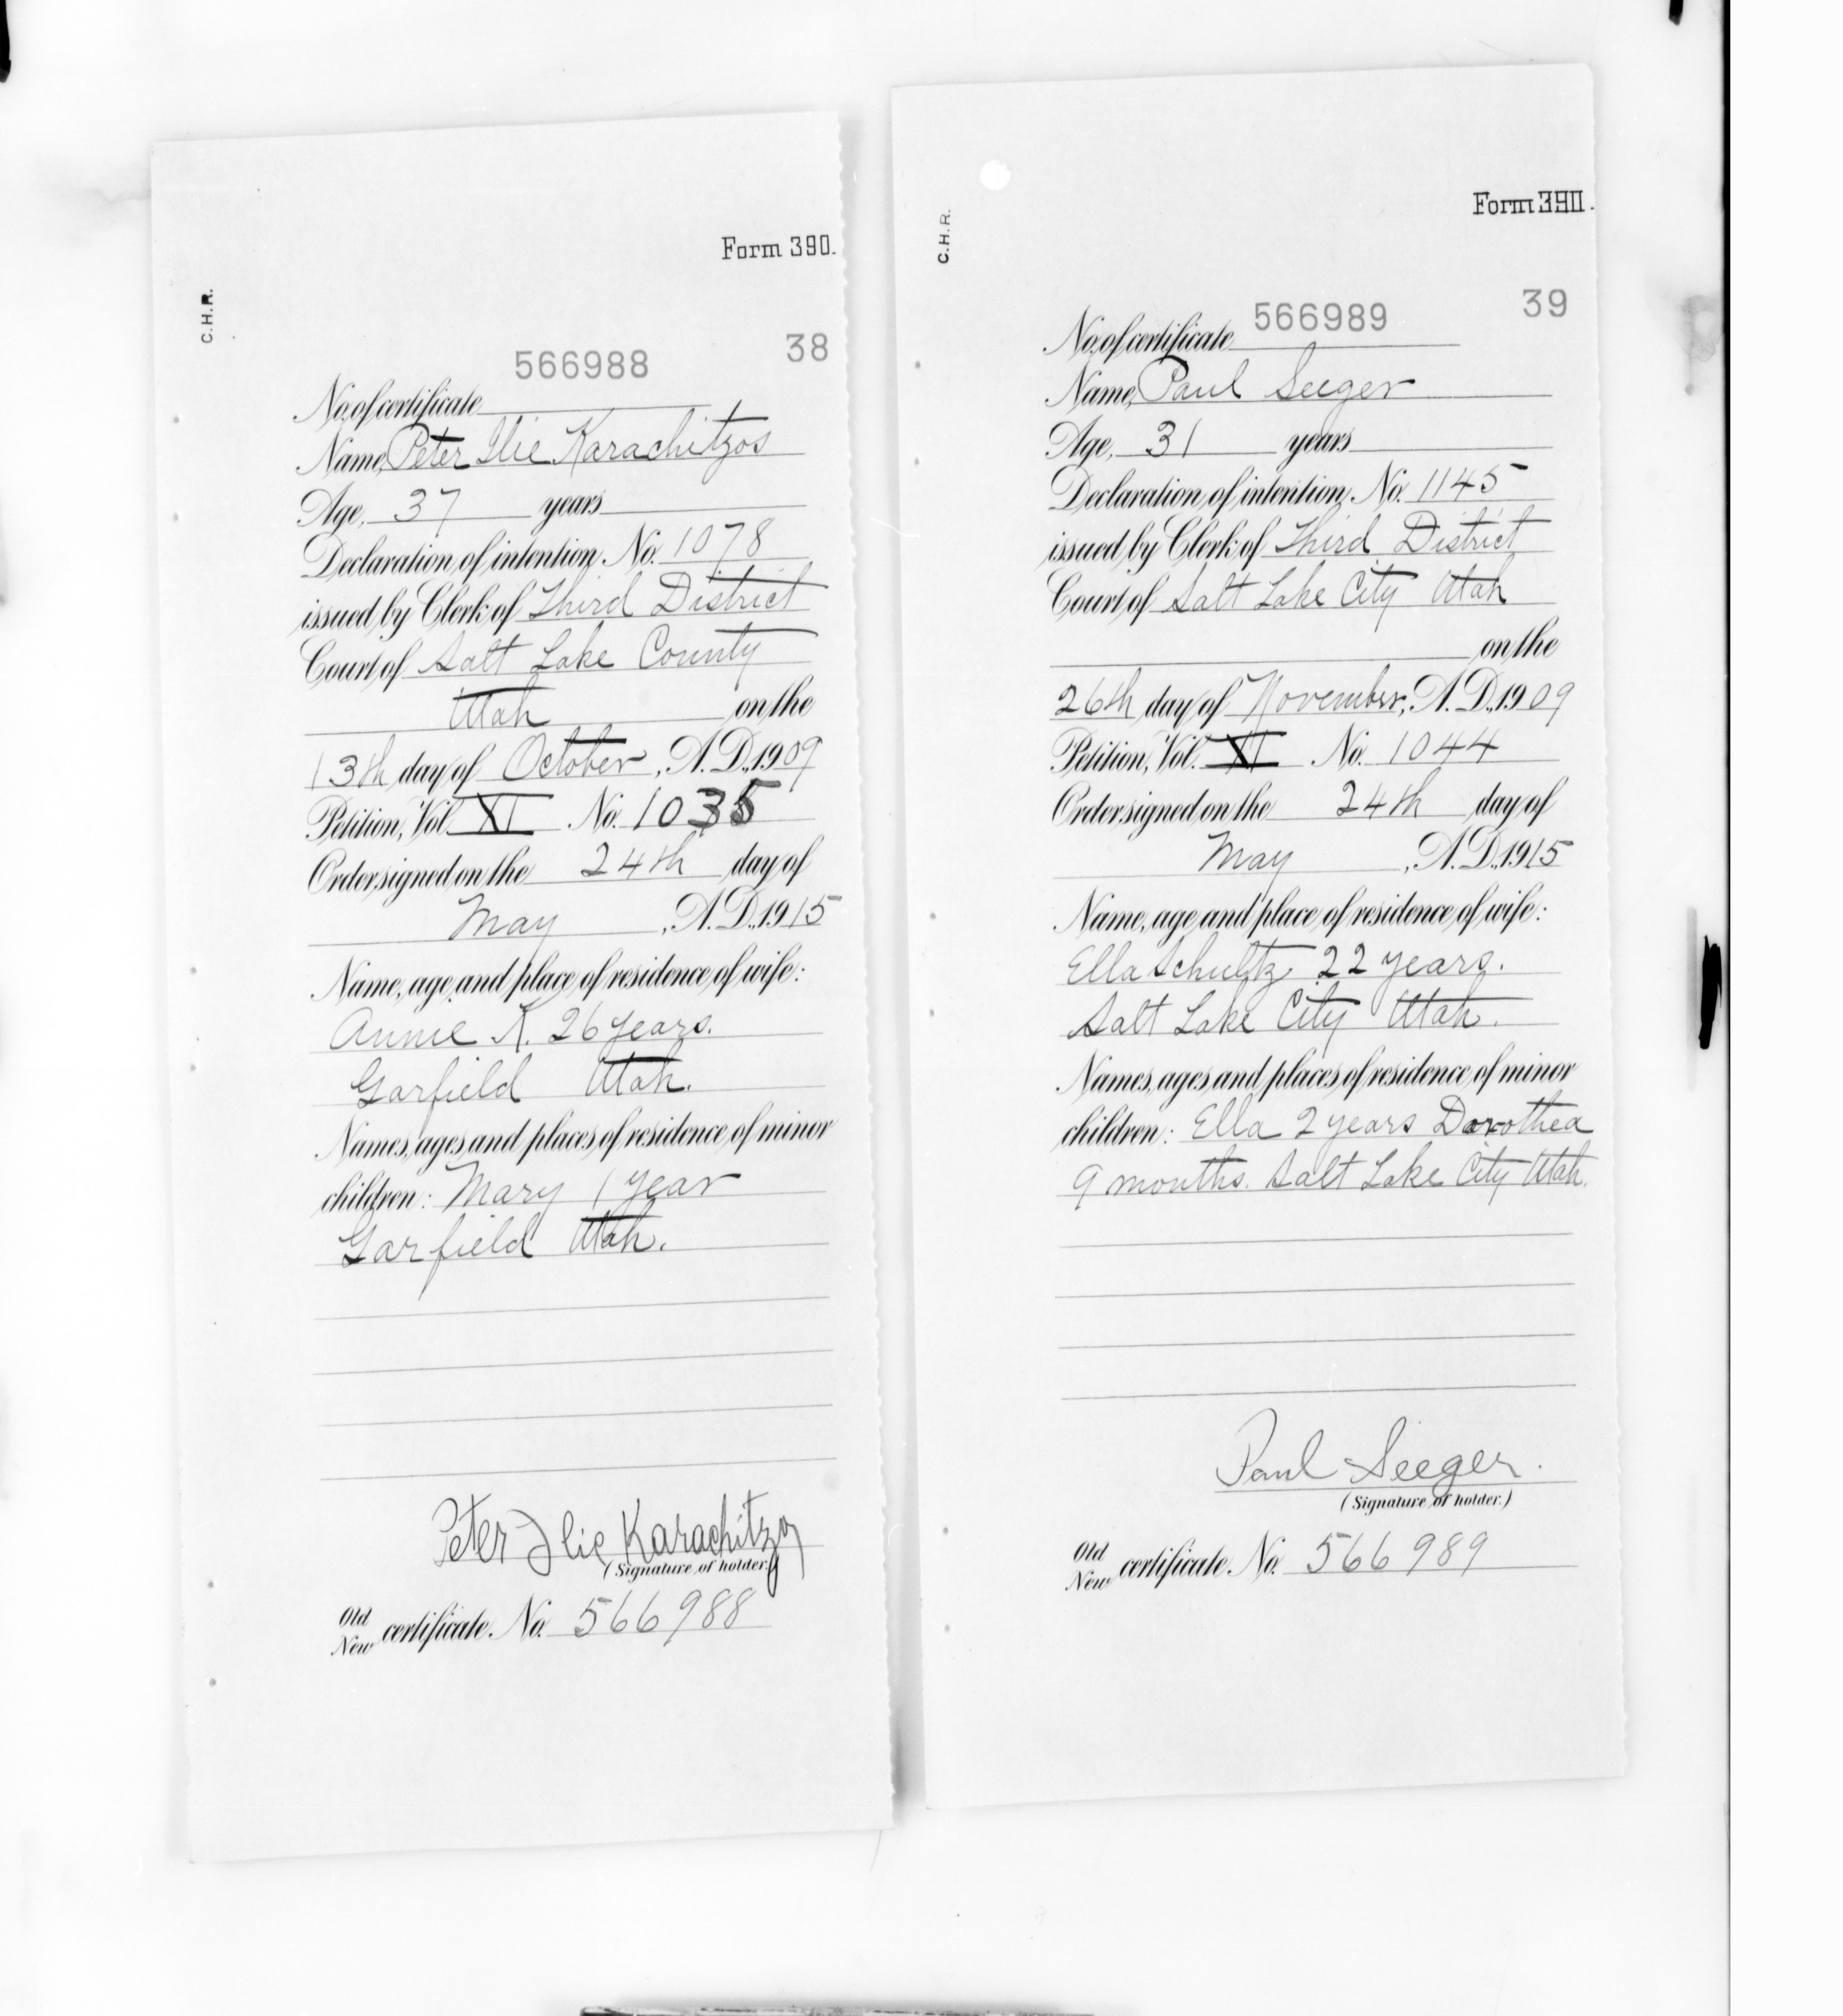 Form 390.
C.H.R.
566988 38
No. of certificate
Name, Peter Ilie Karachitzos
Age, 37 years
Declaration of intention, No. 1078
issued by Clerk of Third District
Court of Salt Lake County
Utah on the
13th day of October, A.D. 1909
Petition, Vol. XI No. 1035
Order signed on the 24th day of
May, A.D. 1915
Name, age, and place of residence of wife:
Annie K. 26 years.
Garfield Utah.
Names, ages, and places of residence of minor
children: Mary 1 year
Garfield Utah.
Peter Ilie Karachitzos
(Signature of holder.)
Old
New certificate No. 566988
Form 390.
C.H.R.
39
No. of certificate 566989
Name, Paul Seeger
Age, 31 years
Declaration of intention, No. 1145
issued by Clerk of Third District
Court of Salt Lake City Utah
on the
26th day of November, A.D. 1909
Petition, Vol. XI No. 1044
Order signed on the 24th day of
May, A.D. 1915
Name, age, and place of residence of wife:
Ella Schultz 22 years.
Salt Lake City Utah.
Names, ages, and places of residence of minor
children: Ella 2 years Dorothea
9 months. Salt Lake City Utah.
Paul Seeger.
(Signature of holder.)
Old
New certificate No. 566989